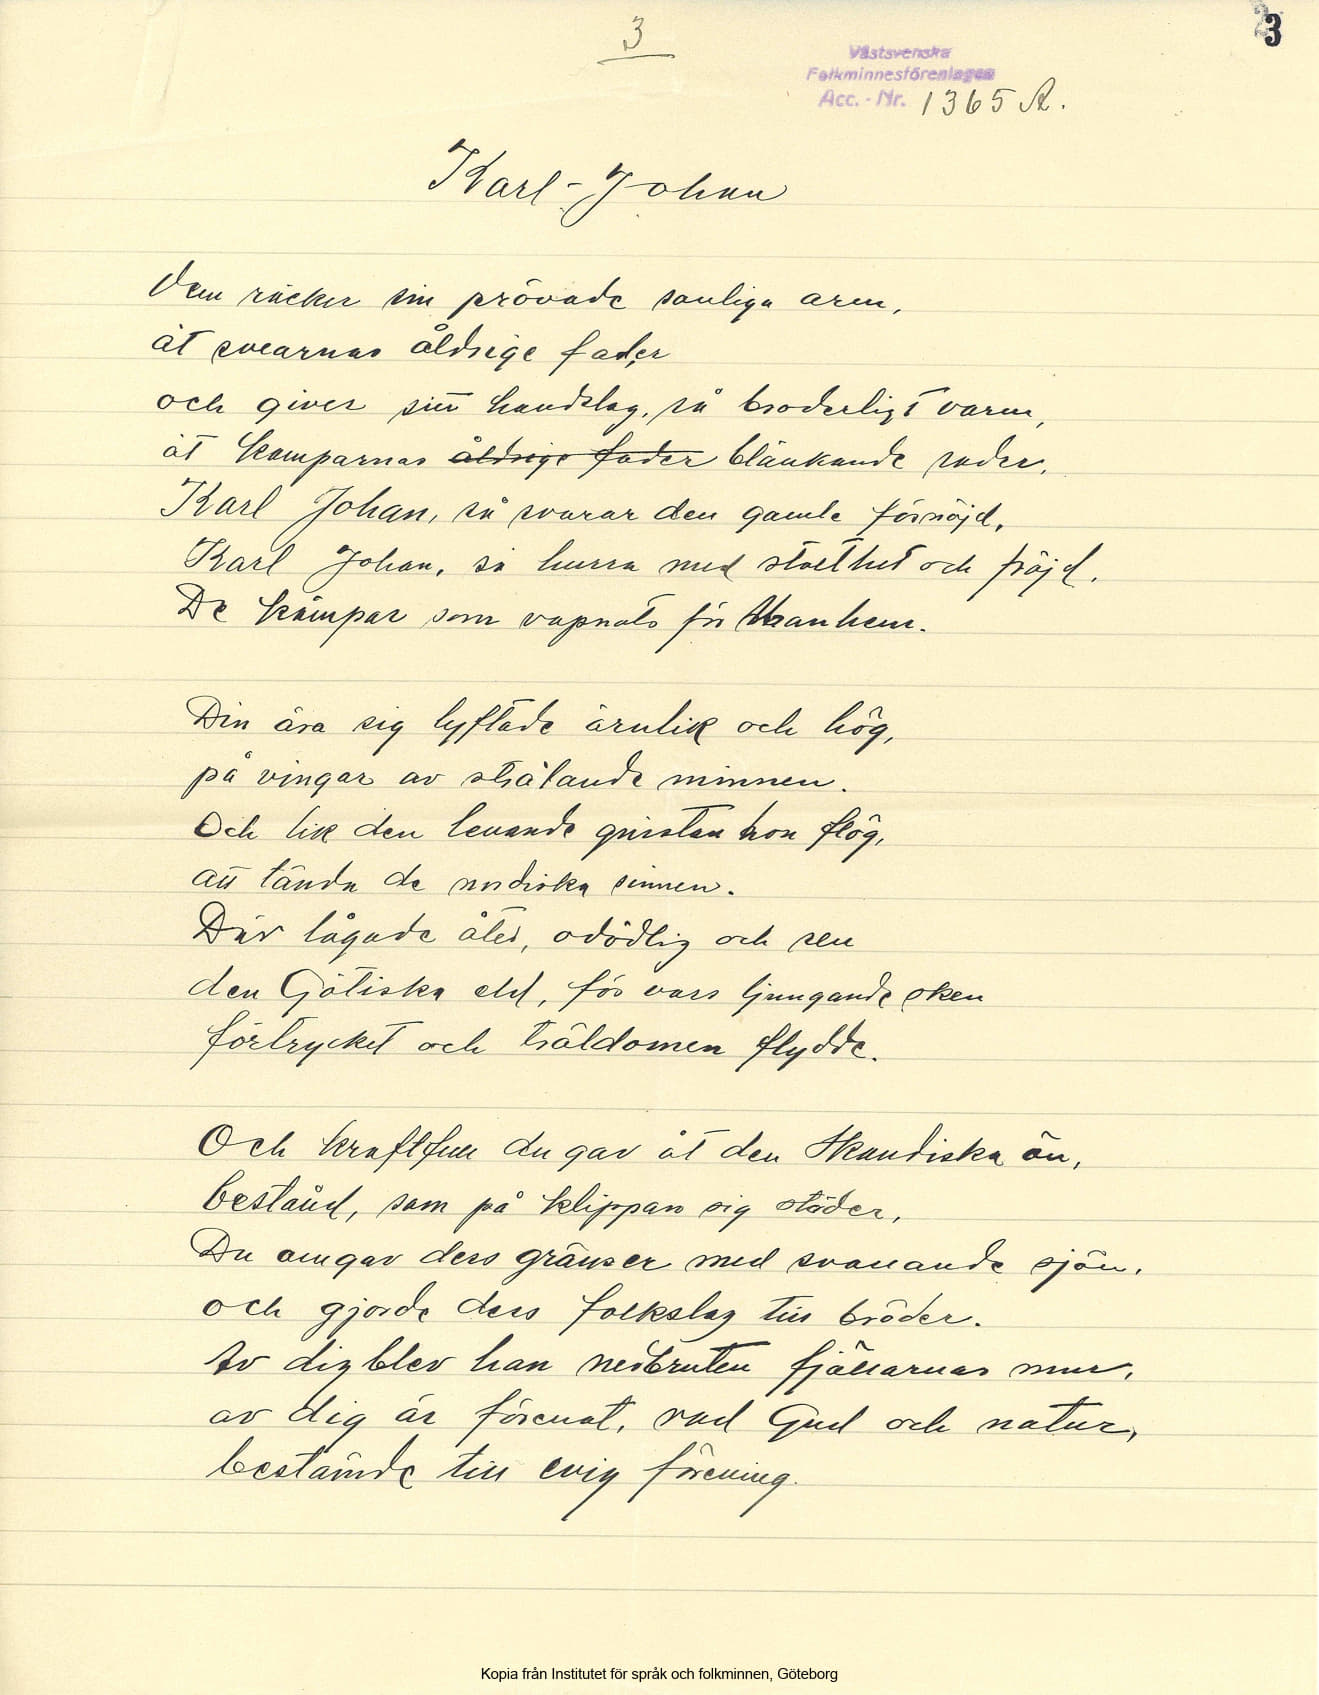 3
3
Västsvenska
Folkminnesföreningen
Acc.-Nr. 1365 A.
Karl-Johan
Vem räcker sin prövade sonliga arm,
åt svearnas åldrige fader
och giver sitt handslag, så broderligt varm,
åt kamparnas åldrige fader blänkande rader.
Karl Johan, så svarar den gamle förnöjd,
Karl Johan, så hurra med stolthet och fröjd.
De kämpar som vapnats för Manhem.
Din ära sig lyftade örnlik och hög,
på vingar av strålande minnen.
Och lik den levande gnistan hon flög,
att tända de nordiska sinnen.
Där lågade åter, odödlig och ren
den Götiska eld, för vars ljungande sken
förtrycket och träldomen flydde.
Och kraftfull du gav åt den Skandiska ön,
bestånd, som på klippan sig stöder,
Du omgav dess gränser med svallande sjön,
och gjorde dess folkslag till bröder.
Av dig blev han nedbruten fjällarnas mur,
av dig är förenat, vad Gud och natur,
bestämde till evig förening.
Kopia från Institutet för språk och folkminnen, Göteborg